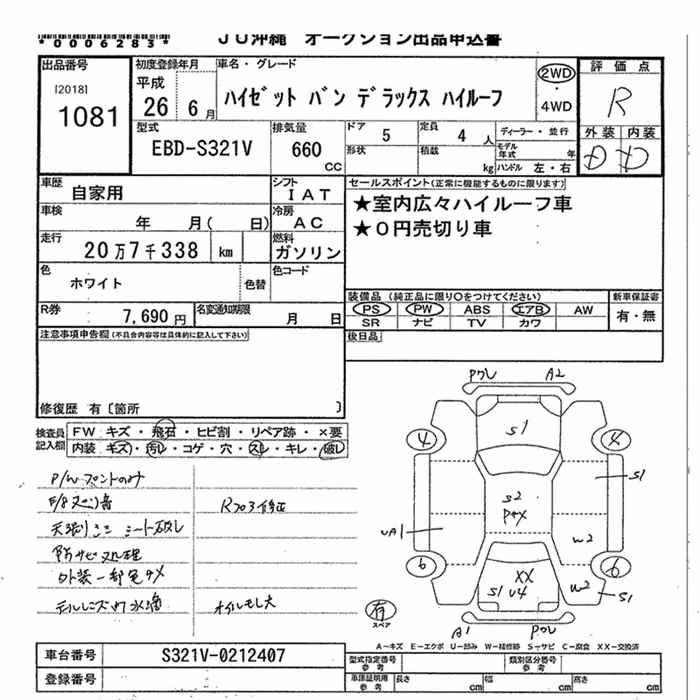 *0006283*
JU沖縄 オークション出品申込書
出品番号
[2018]
1081
初度登録年月
平成
26 6月
車名・グレード
ハイゼット バン デラックス ハイルーフ
2WD
・
4WD
評価点
R
外装 内装
D D
型式
EBD-S321V
排気量
660
CC
ドア 5
定員 4 人
形状
積載 kg
ディーラー・並行
モデル年式 年
ハンドル 左・右
車歴
自家用
シフト
IAT
車検
年 月( 日)
冷房
AC
走行
20万7千338 km
燃料
ガソリン
色
ホワイト
色替
色コード
R券
7,690円
名変通知期限
月 日
セールスポイント(正常に機能するものに限ります)
★室内広々ハイルーフ車
★0円売切り車
装備品 (純正品に限り○をつけてください)
PS PW ABS エアB AW
SR ナビ TV カワ
新車保証書
有・無
後日品
注意事項申告欄(不具合内容等は具体的に記入して下さい)
修復歴 有〔箇所 〕
検査員記入欄
FW キズ・飛石・ヒビ割・リペア跡・×要
内装 キズ・汚レ・コゲ・穴・スレ・キレ・破レ
P/Wフロントのみ
Rフロア修正
シート破レ
防サビ処理
外装一部色ヌケ
オイルモレ大
ワレ A2
S1
4 4
S1
S2
UA1
W2
6 6
XX
S1 U4
W2
S1
A1 ワレ
有
スペア
A-キズ E-エクボ U-凹み W-補修跡 S-サビ C-腐食 XX-交換済
車台番号
S321V-0212407
登録番号
型式指定番号
参考
類別区分番号
参考
車庫証明用
参考
長さ cm
幅 cm
高さ cm